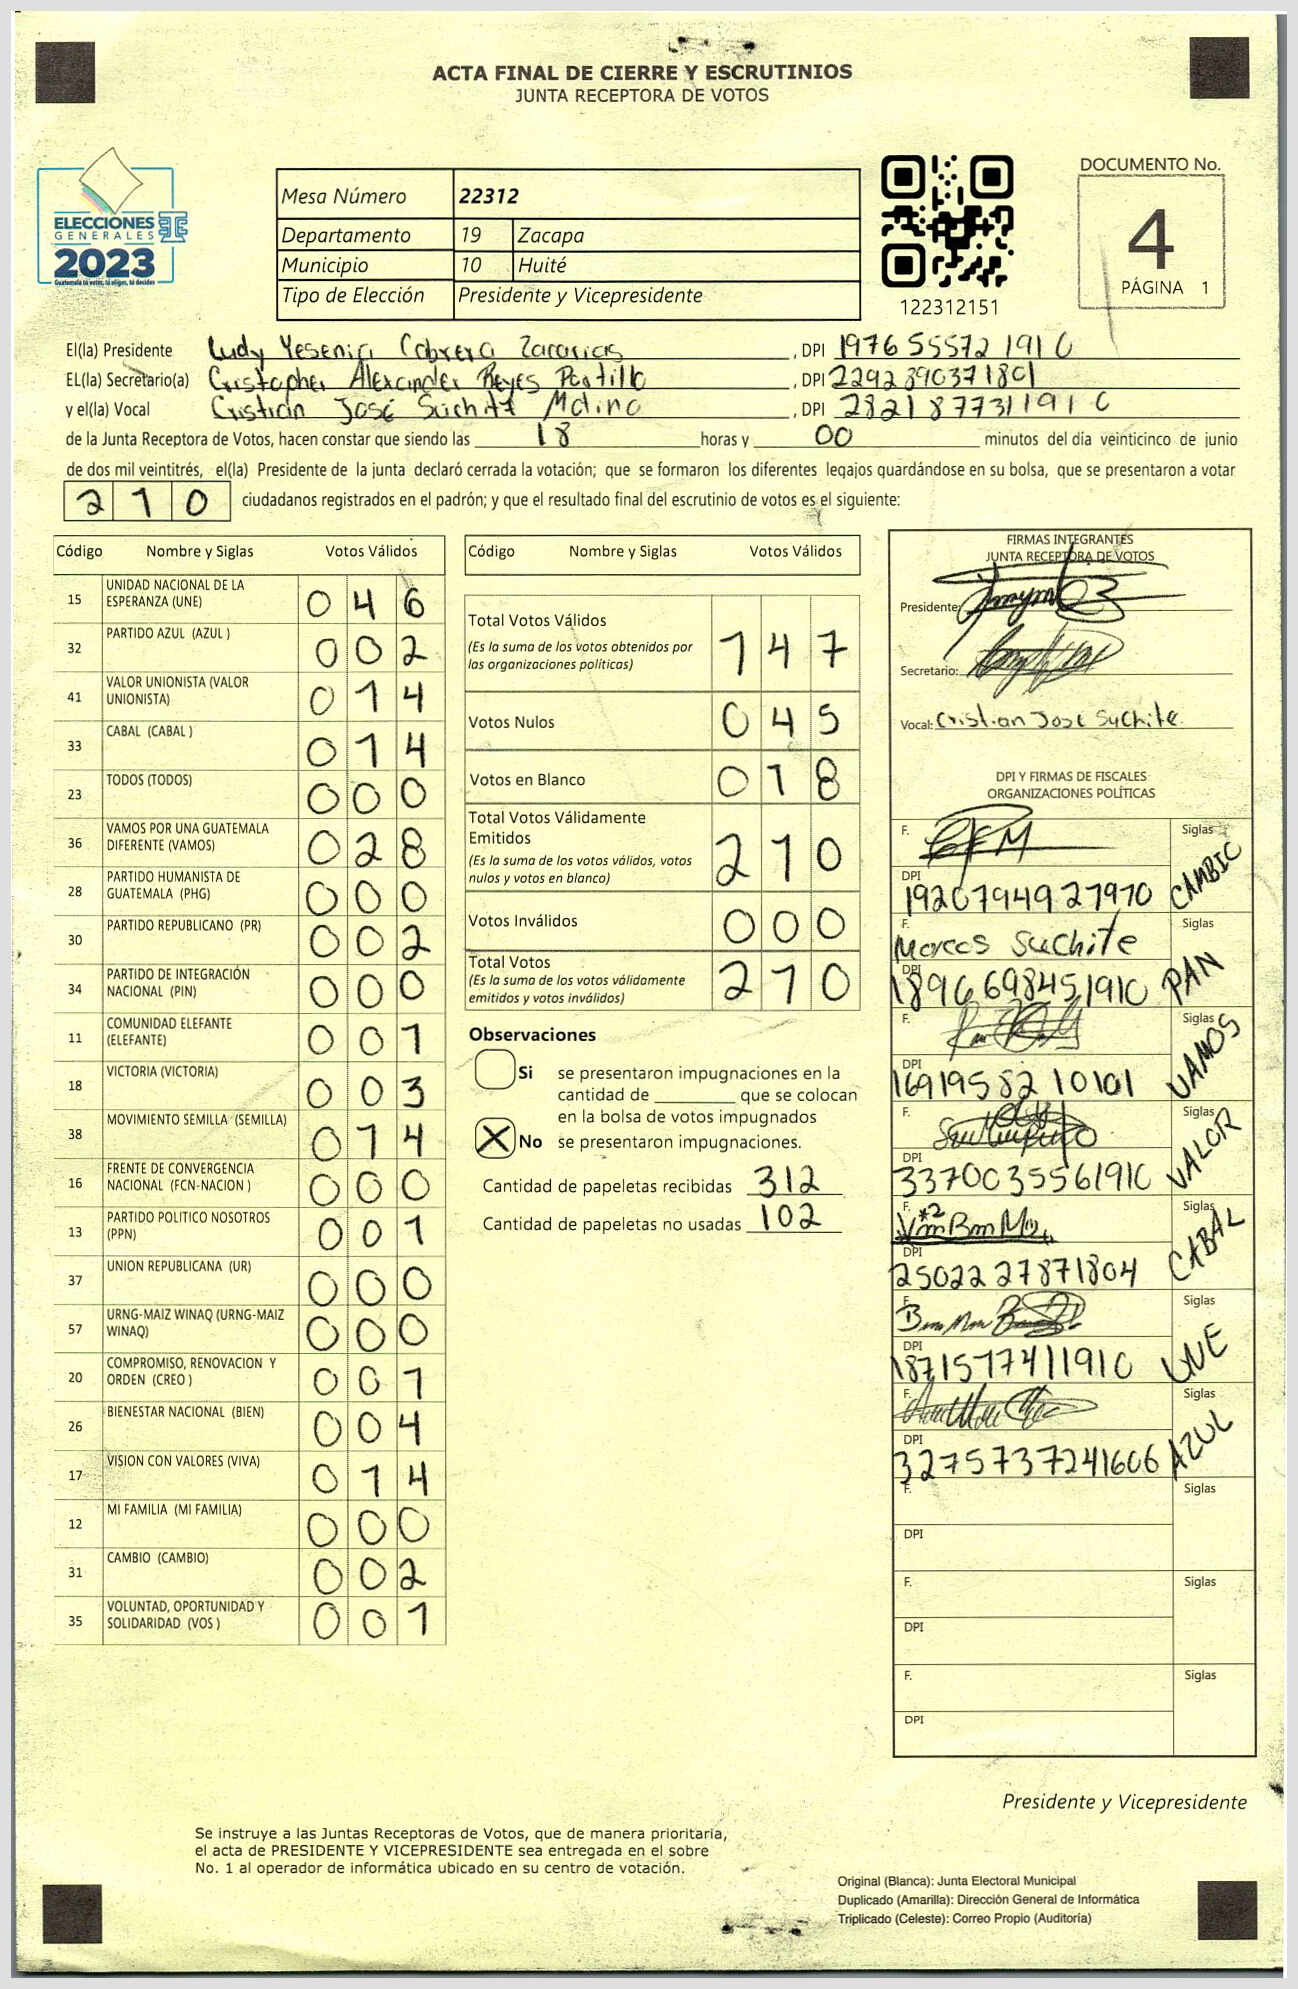 ACTA FINAL DE CIERRE Y ESCRUTINIOS
JUNTA RECEPTORA DE VOTOS
ELECCIONES
GENERALES
2023
Guatemala tú votas, tú eliges, tú decides
Mesa Número 22312
Departamento 19 Zacapa
Municipio 10 Huité
Tipo de Elección Presidente y Vicepresidente
122312151
DOCUMENTO No.
4
PÁGINA 1
El(la) Presidente Ludy Yesenia Cabrera Zacarias, DPI 1976555721910
EL(la) Secretario(a) Cristopher Alexander Reyes Portillo, DPI 2292890371801
y el(la) Vocal Cristian José Suchite Molina, DPI 2821877311910
de la Junta Receptora de Votos, hacen constar que siendo las 18 horas y 00 minutos del día veinticinco de junio
de dos mil veintitrés, el(la) Presidente de la junta declaró cerrada la votación; que se formaron los diferentes legajos guardándose en su bolsa, que se presentaron a votar
210 ciudadanos registrados en el padrón; y que el resultado final del escrutinio de votos es el siguiente:
Código Nombre y Siglas Votos Válidos
15 UNIDAD NACIONAL DE LA ESPERANZA (UNE) 046
32 PARTIDO AZUL (AZUL ) 002
41 VALOR UNIONISTA (VALOR UNIONISTA) 014
33 CABAL (CABAL ) 014
23 TODOS (TODOS) 000
36 VAMOS POR UNA GUATEMALA DIFERENTE (VAMOS) 028
28 PARTIDO HUMANISTA DE GUATEMALA (PHG) 000
30 PARTIDO REPUBLICANO (PR) 002
34 PARTIDO DE INTEGRACIÓN NACIONAL (PIN) 000
11 COMUNIDAD ELEFANTE (ELEFANTE) 001
18 VICTORIA (VICTORIA) 003
38 MOVIMIENTO SEMILLA (SEMILLA) 014
16 FRENTE DE CONVERGENCIA NACIONAL (FCN-NACION ) 000
13 PARTIDO POLITICO NOSOTROS (PPN) 001
37 UNION REPUBLICANA (UR) 000
57 URNG-MAIZ WINAQ (URNG-MAIZ WINAQ) 000
20 COMPROMISO, RENOVACION Y ORDEN (CREO ) 001
26 BIENESTAR NACIONAL (BIEN) 004
17 VISION CON VALORES (VIVA) 014
12 MI FAMILIA (MI FAMILIA) 000
31 CAMBIO (CAMBIO) 002
35 VOLUNTAD, OPORTUNIDAD Y SOLIDARIDAD (VOS ) 001
Código Nombre y Siglas Votos Válidos
Total Votos Válidos 147
(Es la suma de los votos obtenidos por
las organizaciones políticas)
Votos Nulos 045
Votos en Blanco 018
Total Votos Válidamente
Emitidos 210
(Es la suma de los votos válidos, votos
nulos y votos en blanco)
Votos Inválidos 000
Total Votos 210
(Es la suma de los votos válidamente
emitidos y votos inválidos)
Observaciones
Si se presentaron impugnaciones en la
cantidad de ________ que se colocan
en la bolsa de votos impugnados
X No se presentaron impugnaciones.
Cantidad de papeletas recibidas 312
Cantidad de papeletas no usadas 102
FIRMAS INTEGRANTES
JUNTA RECEPTORA DE VOTOS
Presidente:
Secretario:
Vocal: Cristian José Suchite
DPI Y FIRMAS DE FISCALES
ORGANIZACIONES POLÍTICAS
F. Siglas CAMBIO
DPI 1920794927970
F. Marcos Suchite Siglas PAN
DPI 1896698451910
F. Siglas VAMOS
DPI 1691958210101
F. Siglas VALOR
DPI 3370035561910
F. Siglas CABAL
DPI 2502227871804
F. Siglas UNE
DPI 1871577411910
F. Siglas AZUL
DPI 3275737241606
F. Siglas
DPI
F. Siglas
DPI
F. Siglas
DPI
Presidente y Vicepresidente
Se instruye a las Juntas Receptoras de Votos, que de manera prioritaria,
el acta de PRESIDENTE Y VICEPRESIDENTE sea entregada en el sobre
No. 1 al operador de informática ubicado en su centro de votación.
Original (Blanca): Junta Electoral Municipal
Duplicado (Amarilla): Dirección General de Informática
Triplicado (Celeste): Correo Propio (Auditoría)